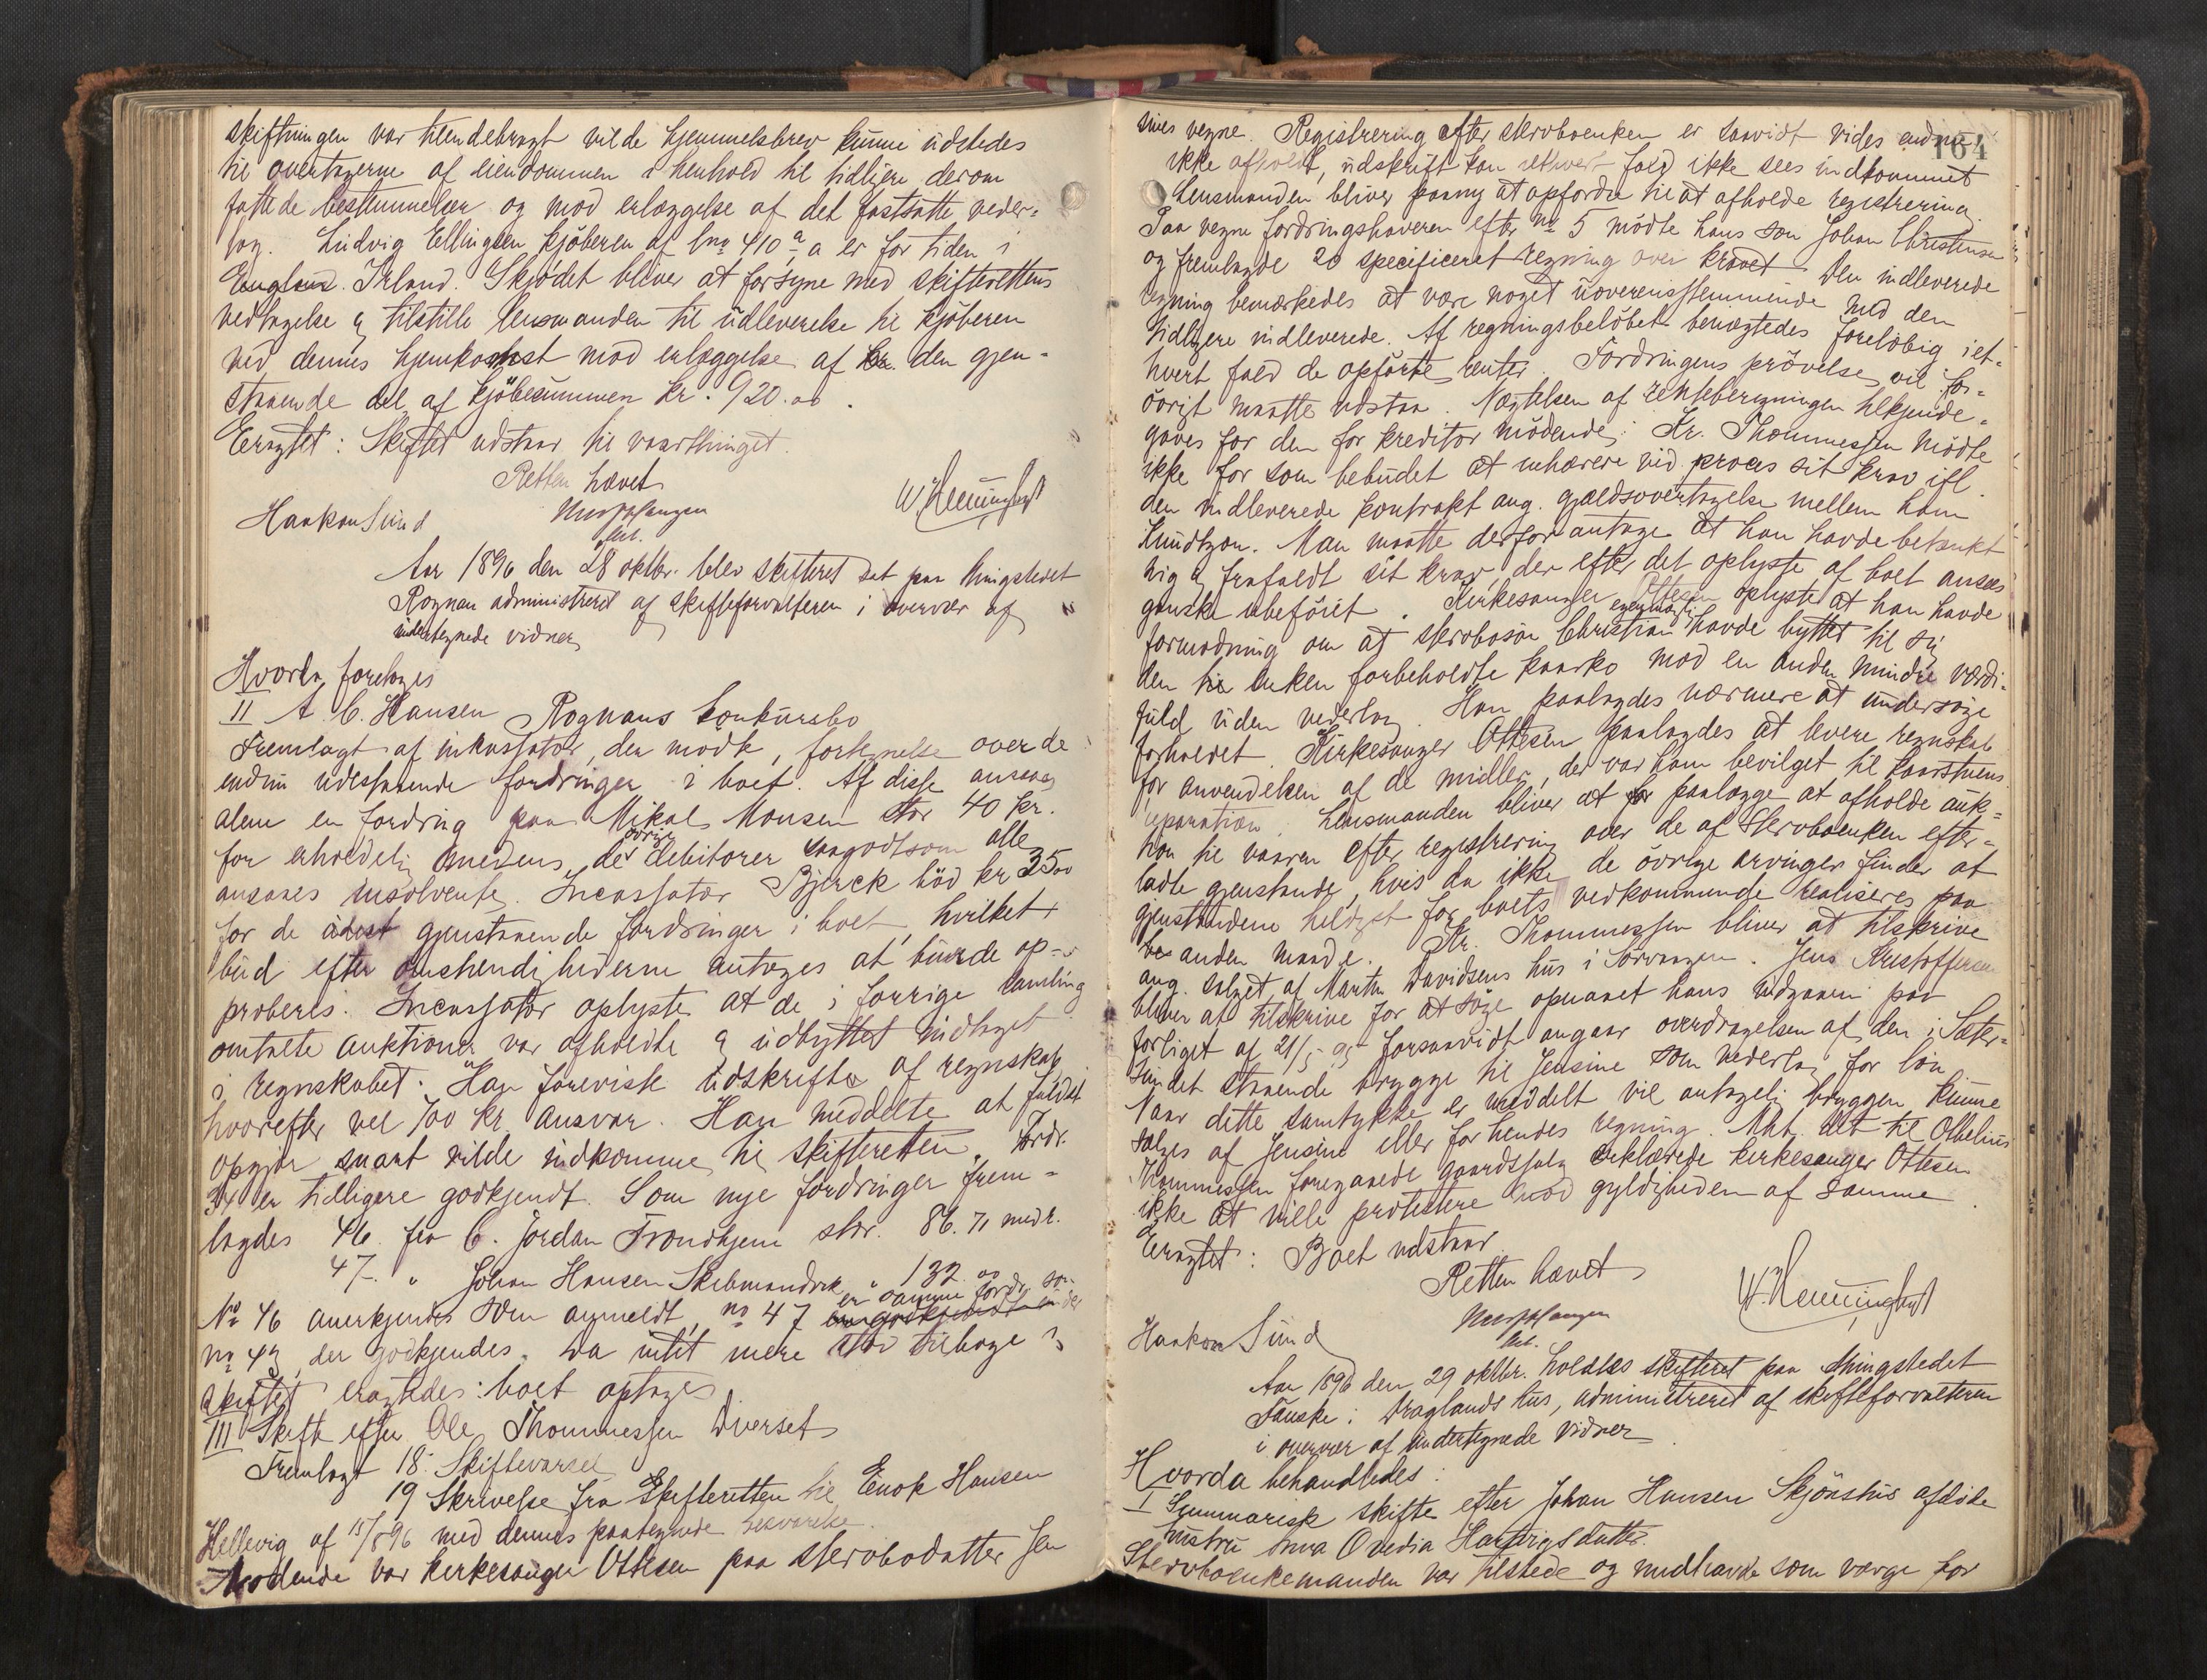 skiftningen var tilendebragt vilde hjemmelsbrev kunne udstedes
til overtagerne af eiendommen i henhold til tidligere derom
fattede bestemmelser og mod erlæggelse af det fastsatte veder-
lag. Ludvig Ellingsen kjøberen af bno 410 a er for tiden i
England. Irland. Skjødet bliver at forsyne med skifterettens
vedtagelse & tilstille lensmanden til udleverelse til kjøberen
ved dennes hjemkomst mod erlæggelse af kr. den gjen-
staaende del af kjøbesummen kr. 920.00.
Eragtet: Skiftet udstaar til vaarthinget.
Retten hævet
Haakon Sund
Aar 1896 den 28 oktbr. blev skifteret sat paa thingstedet
Rognan administreret af skifteforvalteren i overvær af
undertegnede vidner
Hvorda foretoges
II A. C. Hansen Rognans konkursbo
Fremlagt af inkassator, der mødte, fortegnelse over de
endnu udestaaende fordringer i boet. Af disse ansees
alene en fordring paa Mikal Monsen stor 40 kr.
for erholdelig medens de øvrige debitorer saagodtsom alle
ansaaes insolvente. Incassator Bjerck bød kr 25 00
for de gjenstaaende fordringer i boet, hvilket
bud efter omstændighederne antages at burde op-
proberes. Incassator oplyste at de i forrige samling
omtalte auktioner var afholdte & udbyttet indtaget
i regnskabet. Han foreviste udskrifter af regnskab
hvorefter vel 700 kr. ansvar. Han meddelte at fuldt
opgjør snart vilde indkomme til skifteretten. Fordr.
er tidligere godkjendt. Som nye fordringer frem-
lagdes 46. fra C. Jordan Trondhjem stor. 86.71 med r.
47. " Johan Hansen Skibmandvik " 132.00
No 46 anerkjendes som anmeldt, no 47 er samme fordr. som
no 43 der godkjendes. Da intet mere stod tilbage i
skiftet eragtedes: boet optages
III Skifte efter Ole Thommessen Dverset
Fremlagt 18. Skiftevarsel
19 Skrivelse fra Skifteretten til Enok Hansen
Hellevig af 15/8 96 med dennes paategnede besvarelse.
Mødende var kirkesanger Ottesen paa stervbodatter Jen
164
sines vegne. Registrering efter stervboenken er saavidt vides endnu
ikke afholdt, udskrift kan iethvert fald ikke sees indkommet
Lensmanden bliver paany at opfordre til at afholde registrering.
Paa vegne fordringshaveren efter no 5 mødte hans søn Johan Christensen
og fremlagde 20 specificeret regning over kravet. Den indleverede
regning bemærkedes at være noget uoverensstemmende med den
tidligere indleverede. Af regningsbeløbet benægtedes foreløbig iet-
hvert fald de opførte renter. Fordringens prøvelse vil for-
øvrigt maatte udstaa. Nægtelsen af renteberegningen tilkjende-
gaves for den for kreditor mødende. Kr. Thommessen mødte
ikke for som bebudet at inhærere ved proces sit krav ifl.
den indleverede kontrakt ang. gjældsovertagelse mellem ham
Knudtzon. Man maatte derfor antage at han havde betænkt
sig & frafaldt sit krav, der efter det oplyste af boet ansees
ganske ubeføiet. Kirkesanger Ottesen oplyste at han havde
formodning om at stervbosøn Christian egenmægtig havde byttet til sig
den til enken forbeholdte kaarko mod en anden mindre værdi-
fuld uden vederlag. Han paalagdes nærmere at undersøge
forholdet. Kirkesanger Ottesen paalagdes at levere regnskab
for anvendelsen af de midler, der var ham bevilget til kaarstuens
reparation. Lensmanden bliver at paalægge at afholde auk-
tion til vaaren efter registrering over de af stervboenken efter-
ladte gjenstande, hvis da ikke de øvrige arvinger finder at
gjenstandene heldigst for boets vedkommende realiseres paa
anden maade. Kr. Thommessen bliver at tilskrive
ang. salget af Martin Davidsens hus i Sørvaagen. Jens Kristoffersen
bliver at tilskrive for at søge opnaaet hans indgaaen paa
forliget af 21/5 95 forsaavidt angaar overdragelsen af den i Sæter-
landet staaende brygge til Jensine som vederlag for løn
Naar dette samtykke er meddelt vil antagelig bryggen kunne
sælges af Jensine eller for hendes regning. Mht. det til Othelius
Thommessen foregaaede gaardssalg erklærede kirkesanger Ottesen
ikke at ville protestere mod gyldigheden af samme
Eragtet: Boet udstaar.
Retten hævet
Haakon Sund
Aar 1896 den 29 oktbr. holdtes skifteret paa thingstedet
Fauske i Draglands hus, administreret af skifteforvalteren
i overvær af undertegnede vidner
Hvorda behandledes:
I Summarisk skifte efter Johan Hansen Skjønshus afdøde
hustru Anna Ovedia Hartvigsdatter.
Stervboenkemanden var tilstede og medhavde som værge for